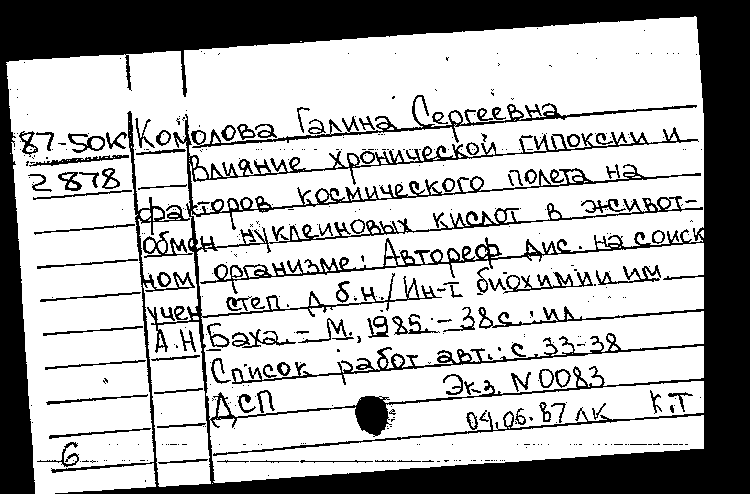 87-50К Комолова, Галина Сергеевна
2878 Влияние хронической гипоксии и
факторов космического полета на
обмен нуклеиновых кислот в живот-
ном организме: Автореф дис. на соиск
учен степ. д.б.н./Ин-т биохимии им.
А.Н. Баха. - М., 1985. - 38 с.: ил.
Список работ авт.: с. 33-38
ДСП Экз. N 0083
04.06.87 ЛК К,Т
6